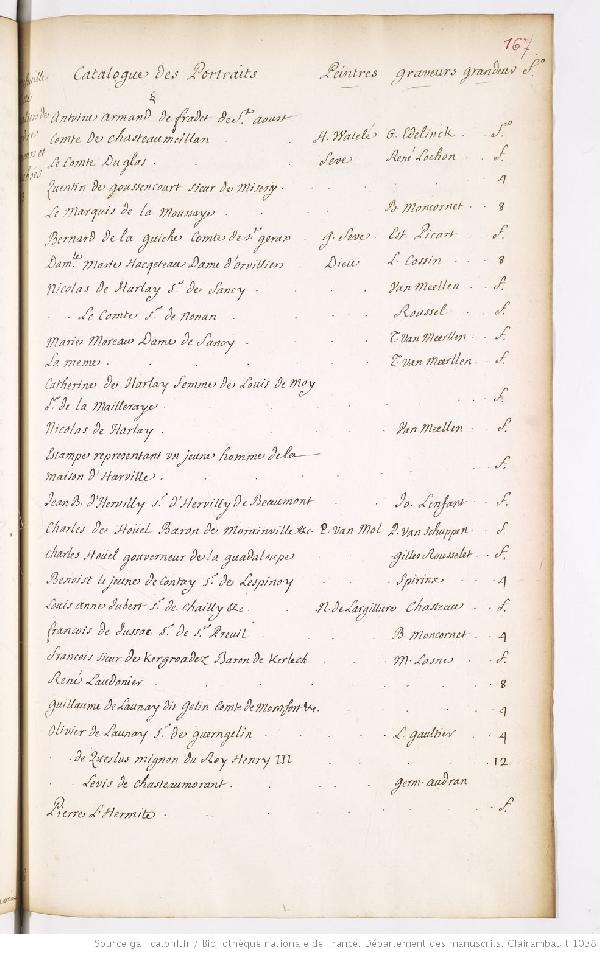 167
Catalogue des Portraits Peintres graveurs grandeur f.o
Antoine armand de fradet de St. aoust
Comte de chasteaumeillan . H. Watelé G. Edelinck . f.o
Le Comte Duglas . Seve . René Lochon . f.
Quentin de goussencourt sieur de Misery . 4
Le Marquis de la Moussaye . B. Moncornet . 8
Bernard de la guiche Comte de St. geran . g. Seve . Est. Picart . f.
Dam.lle Marie Hacqeteau Dame d'orvilliers Dieu . L. Cossin . 8
Nicolas de Harlay Sr. de Sancy . Van Meellen . f.
Le Comte Sr. de Nonan . Roussel . f.
Marie Moreau Dame de Sancy . T. Van Meerllen . f.
La meme . T. Van Merllen . f.
Catherine de Harlay femme de Louis de Moy
Sr. de la Mailleraye . f.
Nicolas de Harlay . Van Mellen . f.
Estampe representant un jeune homme de la
maison d'Harville . f.
Jean B. d'Hervilly Sr. d'Hervilly de Beaumont Jo. Lenfant . f.
Charles de Houel Baron de Morainville &c. P. Van Mol P. Van Schuppen . f.
Charles Houel gouverneur de la guadaloupe gilles Rousselet . f.
Benoist le jeune de Contay Sr. de Lespinoy Spirinx . 4
Louis anne Aubert Sr. de Chailly &c. N. de Largilliere Chasteau . f.
francois de Jussac Sr. de St. Preuil B. Moncornet . 4
francois sieur de Kergroadez Baron de Kerlech M. Lasne . f.
René Laudonier . 8
guillaume de Launay dit Gelin Comte de Montfort &c. 4
Olivier de Launay Sr. de guerngelin . L. gaultier . 4
de Queslus mignon du Roy Henry III . 12
Levis de chasteaumorant . germ. audran
Pierre L'Hermite . f.
Source gallica.bnf.fr / Bibliothèque nationale de France. Département des manuscrits. Clairambault 1038